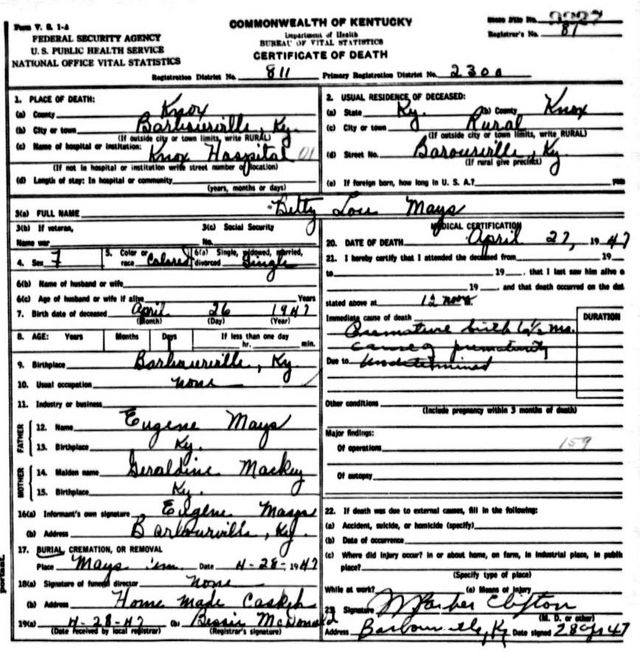 Form V. S. 1-A
FEDERAL SECURITY AGENCY
U. S. PUBLIC HEALTH SERVICE
NATIONAL OFFICE VITAL STATISTICS
COMMONWEALTH OF KENTUCKY
Department of Health
BUREAU OF VITAL STATISTICS
CERTIFICATE OF DEATH
State File No.
Registrar's No. 81
Registration District No. 811 Primary Registration District No. 2300
1. PLACE OF DEATH:
(a) County Knox
(b) City or town Barbourville, Ky.
(If outside city or town limits, write RURAL)
(c) Name of hospital or institution:
Knox Hospital 01
(If not in hospital or institution write street number or location)
(d) Length of stay: In hospital or community
(years, months or days)
2. USUAL RESIDENCE OF DECEASED:
(a) State Ky. (b) County Knox
(c) City or town Rural
(If outside city or town limits, write RURAL)
(d) Street No. Barourville, Ky
(If rural give precinct)
(e) If foreign born, how long in U. S. A.?
3(a) FULL NAME Betty Lou Mays
3(b) If veteran,
Name war
3(c) Social Security
No.
4. Sex F 5. Color or race Colored 6(a) Single, widowed, married, divorced Single
6(b) Name of husband or wife
6(c) Age of husband or wife if alive Years
7. Birth date of deceased April 26 1947
(Month) (Day) (Year)
8. AGE: Years Months Days If less than one day
hr. min.
9. Birthplace Barbourville, Ky.
10. Usual occupation none
11. Industry or business
FATHER
12. Name Eugene Mays
13. Birthplace Ky.
MOTHER
14. Maiden name Geraldine Mackey
15. Birthplace Ky.
16(a) Informant's own signature Eugene Mays
(b) Address Barbourville, Ky.
17. BURIAL, CREMATION, OR REMOVAL
Place Mays Date 4-28-1947
18(a) Signature of funeral director none
(b) Address Home Made Caskeh
19(a) 4-28-47 (b) Bessie McDonald
(Date received by local registrar) (Registrar's signature)
MEDICAL CERTIFICATION
20. DATE OF DEATH April 27, 1947
21. I hereby certify that I attended the deceased from 19
to 19 , that I last saw him alive
19 , and that death occurred on the dat
stated above at 12 noon
Immediate cause of death
DURATION
Premature birth 6½ mo.
cause of prematurity
Due to undetermined
Other conditions
(Include pregnancy within 3 months of death)
Major findings:
Of operations 159
Of autopsy
22. If death was due to external causes, fill in the following:
(a) Accident, suicide, or homicide (specify)
(b) Date of occurrence
(c) Where did injury occur? in or about home, on farm, in industrial place, in public
place?
(Specify type of place)
While at work? (e) Means of Injury
23. Signature Clifton
(M. D. or other)
Address Barbourville, Ky Date signed 28 Apr 47